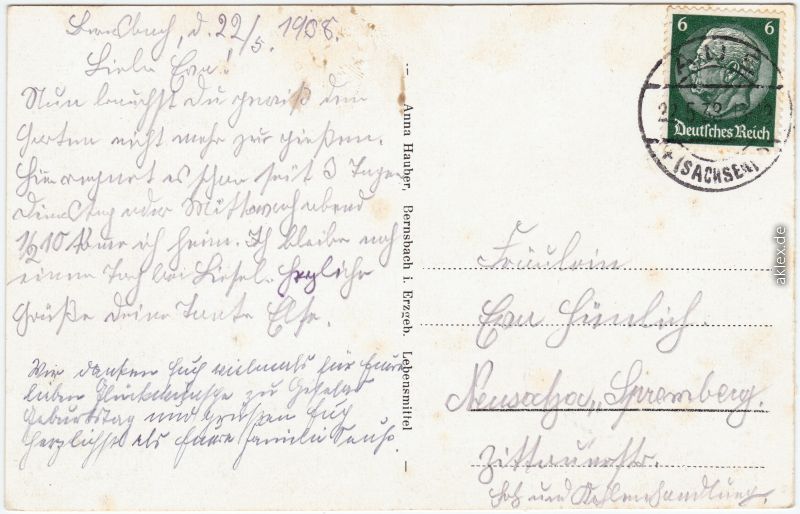 Bernsbach, d. 22/5. 1938.
Liebe Eva!
Nun brauchst Du gewiß den
Garten nicht mehr zu gießen.
Hier regnet es schon seit 3 Tagen
Dienstag oder Mittwoch abend
1/2 10 komme ich heim. Ich bleibe noch
einen Tag bei Liesel. Herzliche
Grüße Deine Tante Else.
Wir danken Euch vielmals für Eure
lieben Glückwünsche zu Giselas
Geburtstag und grüßen Euch
herzlichst als Eure Familie
— Anna Hauber, Bernsbach i. Erzgeb. Lebensmittel —
6 6
Deutsches Reich
AUE
(SACHSEN)
Fräulein
Eva Hünlich.
Neusalza-Spremberg.
Zittauerstr.
Holz und Kohlenhandlung.
aklex.de